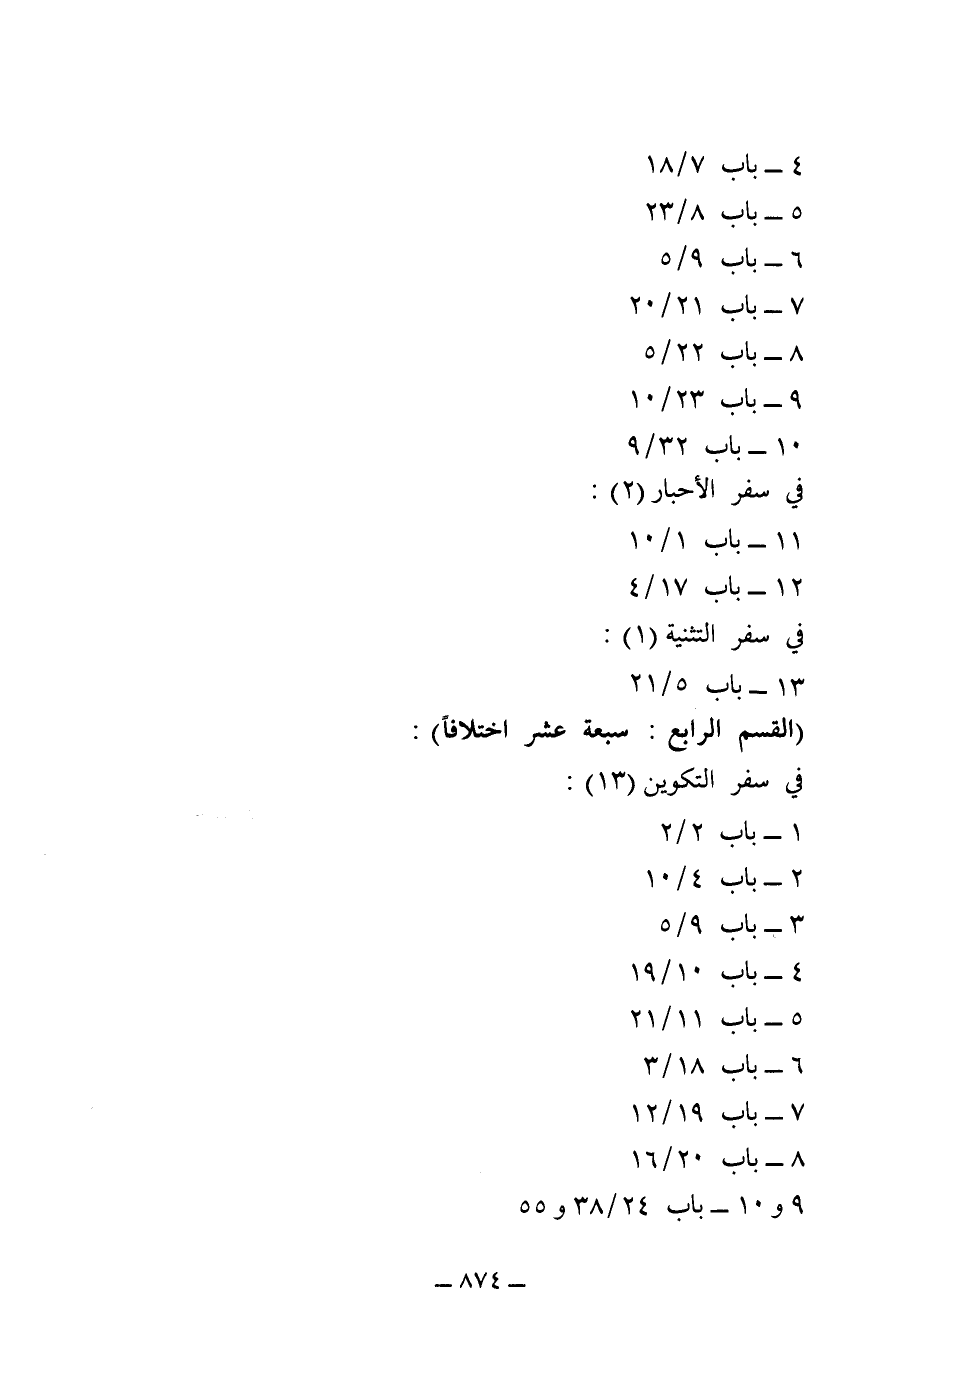 ٤ ــ باب ١٨/٧
٥ ــ باب ٢٣/٨
٦ ــ باب ٥/٩
٧ ــ باب ٢٠/٢١
٨ ــ باب ٥/٢٢
٩ ــ باب ١٠/٢٣
١٠ ــ باب ٩/٣٢
في سفر الأحبار (٢) :
١١ ــ باب ١٠/١
١٢ ــ باب ٤/١٧
في سفر التثنية (١) :
١٣ ــ باب ٢١/٥
(القسم الرابع : سبعة عشر اختلافاً) :
في سفر التكوين (١٣) :
١ ــ باب ٢/٢
٢ ــ باب ١٠/٤
٣ ــ باب ٥/٩
٤ ــ باب ١٩/١٠
٥ ــ باب ٢١/١١
٦ ــ باب ٣/١٨
٧ ــ باب ١٢/١٩
٨ ــ باب ١٦/٢٠
٩ و ١٠ ــ باب ٣٨/٢٤ و ٥٥
ــ ٨٧٤ ــ